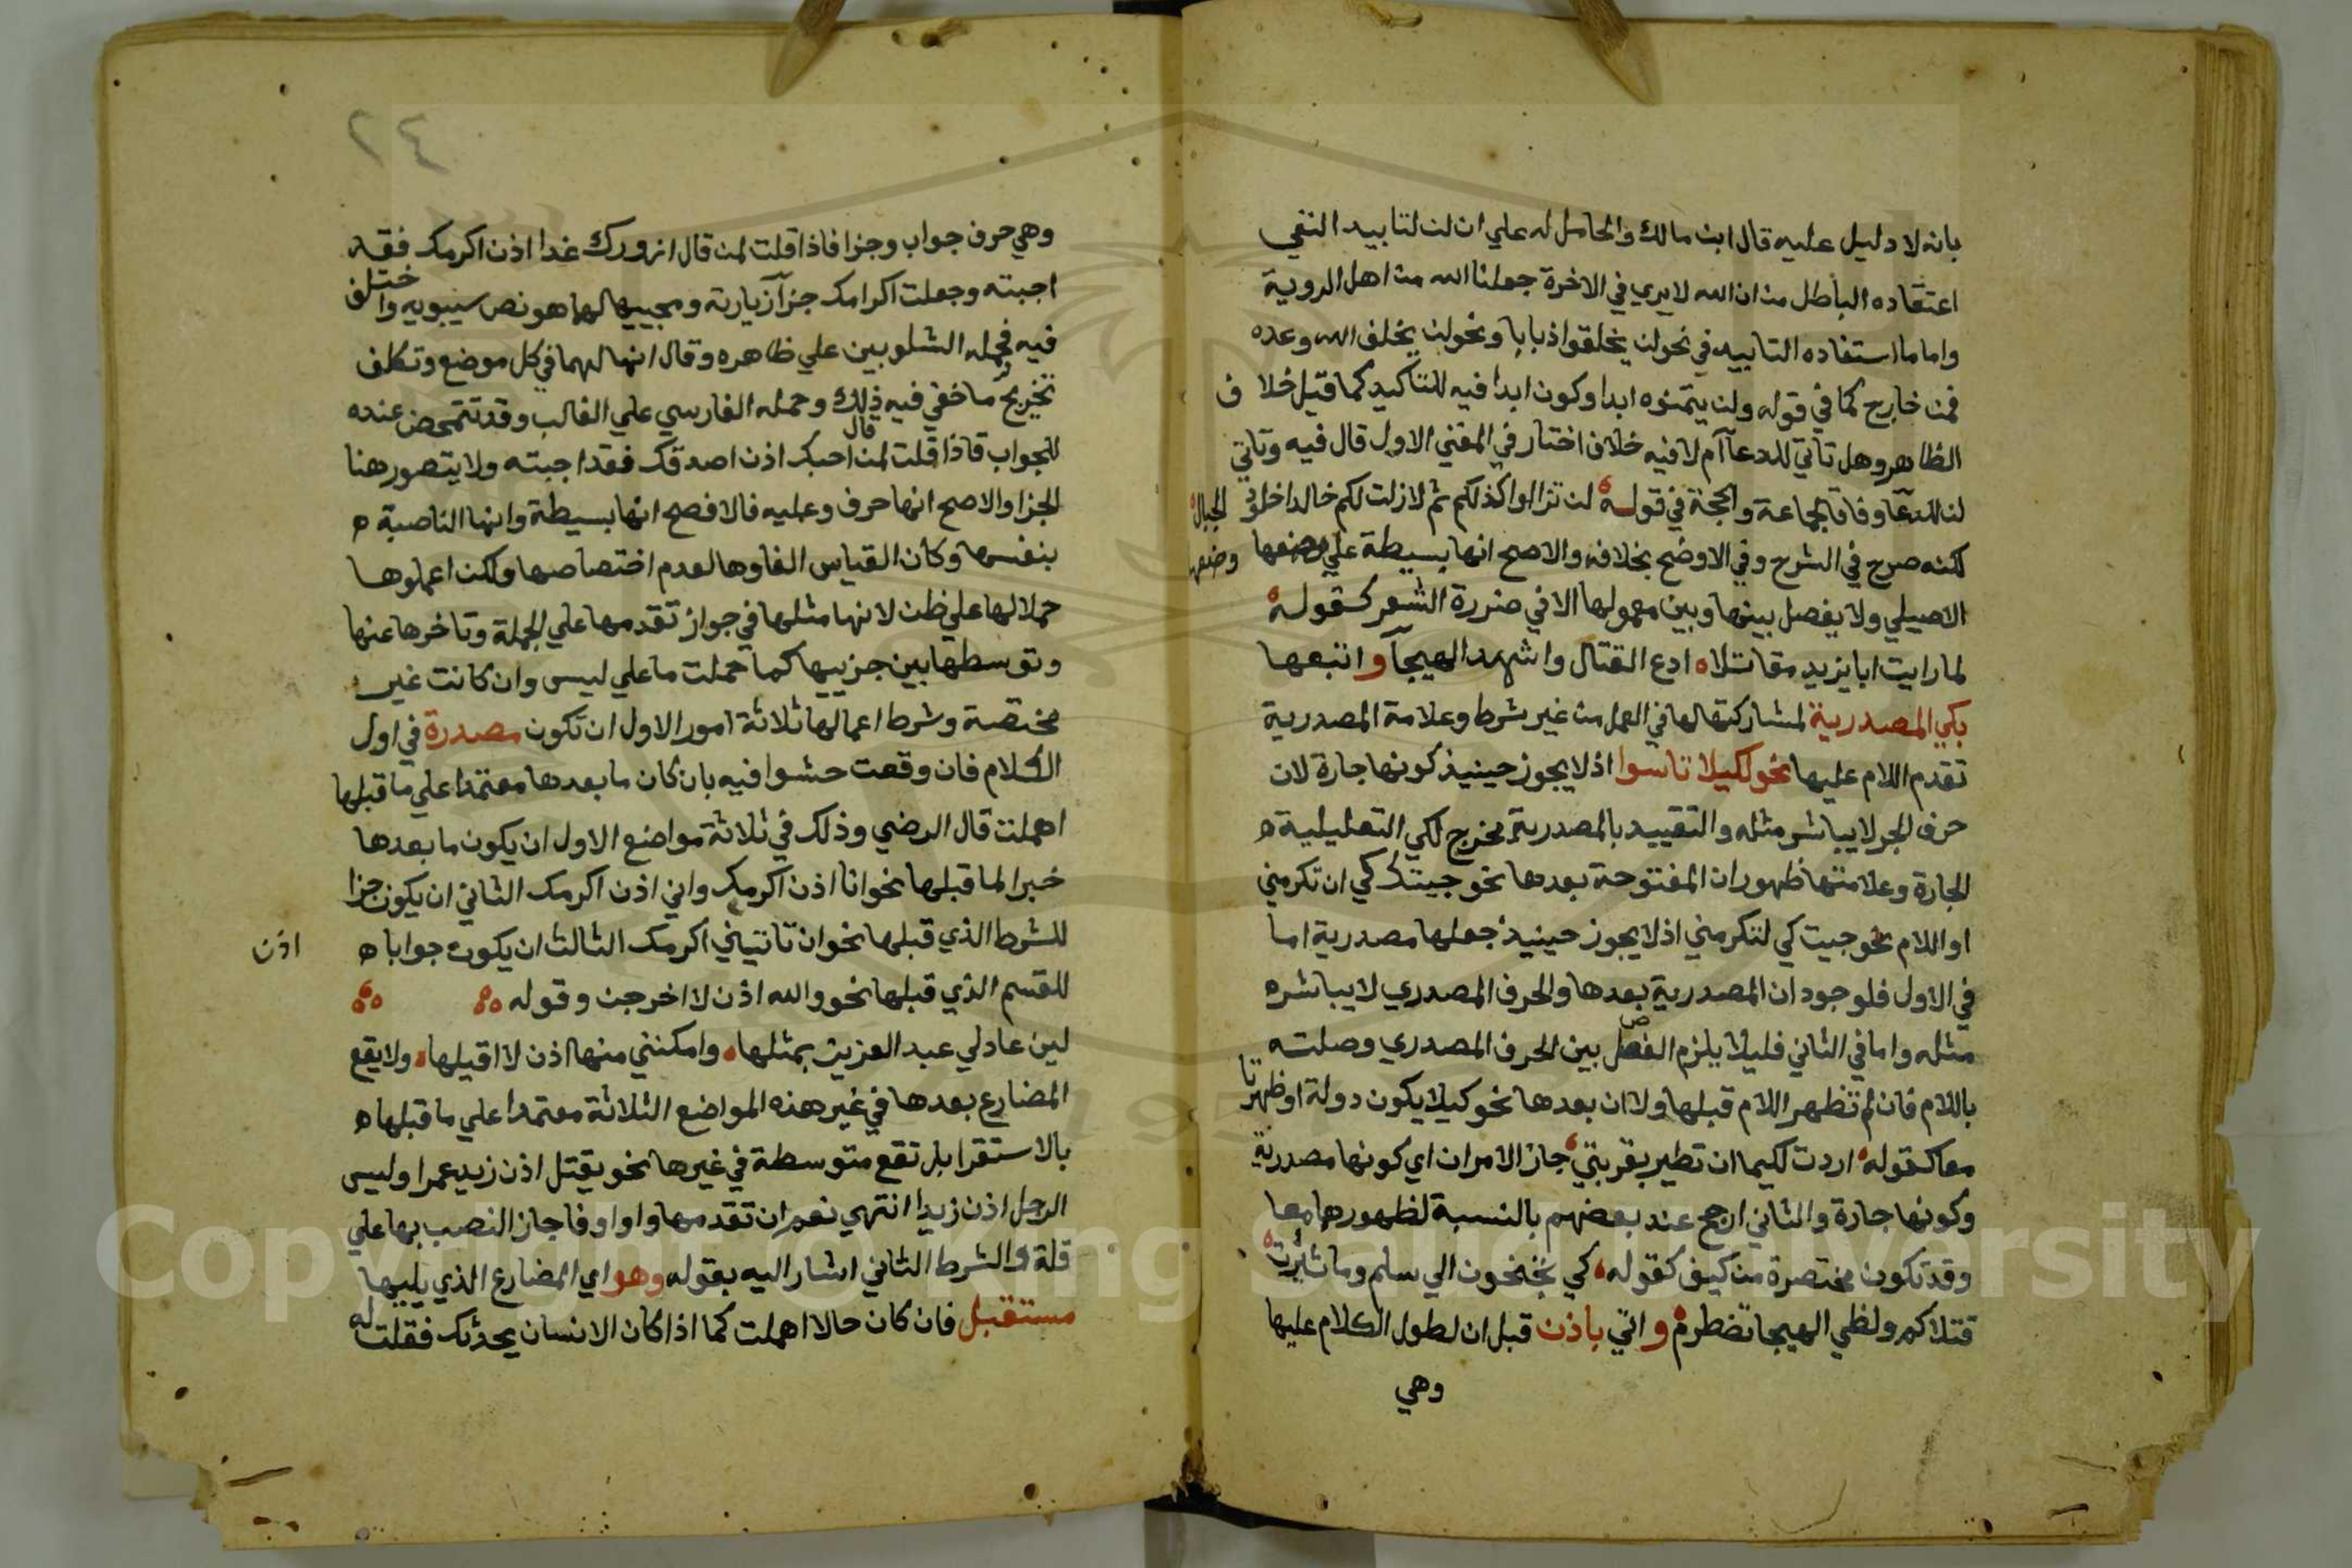 بانه لا دليل عليه قال ابن مالك والحامل له علي ان لن لتابيد النفي
اعتقاده الباطل من ان الله لا يري في الاخرة جعلنا الله من اهل الروية
واما ما استفاده التابيد في نحو لن يخلقوا ذبابا ونحو لن يخلف الله وعده
فمن خارج كما في قوله ولن يتمنوه ابدا وكون ابدا فيه للتاكيد كما قيل خلاف
الظاهر وهل تاتي للدعاآم لا فيه خلاف اختار في المغني الاول قال فيه وتاتي
لن للدعآ وفاقا لجماعة والحجة في قوله لن تزالوا كذلكم ثم لا زلت لكم خالدا خلود الجبال
لكنه صرح في الشرح وفي الاوضح بخلافه والاصح انها بسيطة علي وضعها وضعها
الاصيلي ولا يفصل بينها وبين معمولها الا في ضررة الشعر كقوله
لما رايت ابا يزيد مقاتلا ادع القتال واشهد الهيجآ واتبعها
بكي المصدرية لمشاركتها لها في العمل من غير شرط وعلامة المصدرية
تقدم اللام عليها نحو لكيلا تاسوا اذ لا يجوز حينيذ كونها جارة لان
حرف الجر لا يباشر مثله والتقييد بالمصدرية مخرج لكي التعليلية ه
الجارة وعلامتها ظهور ان المفتوحة بعدها نحو جيتك كي ان تكرمني
او اللام نحو جيت كي لتكرمني اذ لا يجوز حينيذ جعلها مصدرية اما
في الاول فلوجود ان المصدرية بعدها والحرف المصدري لا يباشره
مثله واما في الثاني فليلا يلزم الفصل بين الحرف المصدري وصلته
باللام فان لم تظهر اللام قبلها ولا ان بعدها نحو كيلا يكون دولة او ظهرتا
معا كقوله اردت لكيما ان تطير بقربتي جاز الامران اي كونها مصدرية
وكونها جارة والثاني ارجح عند بعضهم بالنسبة لظهورهما معا
وقد تكون مختصرة من كيف كقوله كي تجنحون الي سلم وما ثيرت
قتلاكم ولظي الهيجا تضطرم واتي باذن قبل ان لطول الكلام عليها
وهي
٢٤
وهي حرف جواب وجزا فاذا قلت لمن قال ازورك غدا اذن اكرمك فقد
اجبته وجعلت اكرامك جزآ زيارته ومجييها لهما هو نص سيبويه واختلف
فيه فحمله الشلوبين علي ظاهره وقال انها لهما في كل موضع وتكلف
تخريج ما خفي فيه ذلك وحمله الفارسي علي الغالب وقد تتمحض عنده
للجواب فاذا قلت لمن قال احبك اذن اصدقك فقد اجبته ولا يتصور هنا
الجزا والاصح انها حرف وعليه فالافصح انها بسيطة وانها الناصبة ه
بنفسها وكان القياس الغاوها لعدم اختصاصها ولكن اعملوها
حملا لها علي ظن لانها مثلها في جواز تقدمها علي الجملة وتاخرها عنها
وتوسطها بين جزييها كما حملت ما علي ليس وان كانت غير
مختصة وشرط اعمالها ثلاثة امور الاول ان تكون مصدرة في اول
الكلام فان وقعت حشوا فيه بان كان ما بعدها معتمدا علي ما قبلها
اهملت قال الرضي وذلك في ثلاثة مواضع الاول ان يكون ما بعدها
خبرا لما قبلها نحو انا اذن اكرمك واني اذن اكرمك الثاني ان يكون جزا
للشرط الذي قبلها نحو ان تاتيني اكرمك الثالث ان يكون جوابا ه اذن
للقسم الذي قبلها نحو والله اذن لا اخرجن وقوله
لين عاد لي عبد العزيز بمثلها وامكنني منها اذن لا اقيلها ولا يقع
المضارع بعدها في غير هذه المواضع الثلاثة معتمدا علي ما قبلها ه
بالاستقرا بل تقع متوسطة في غيرها نحو يقتل اذن زيد عمرا وليس
الرجل اذن زيدا انتهي نعم ان تقدمها واو او فا جاز النصب بها علي
قلة والشرط الثاني اشار اليه بقوله وهو اي المضارع الذي يليها
مستقبل فان كان حالا اهملت كما اذا كان الانسان يحدثك فقلت له
Copyright © King Saud University